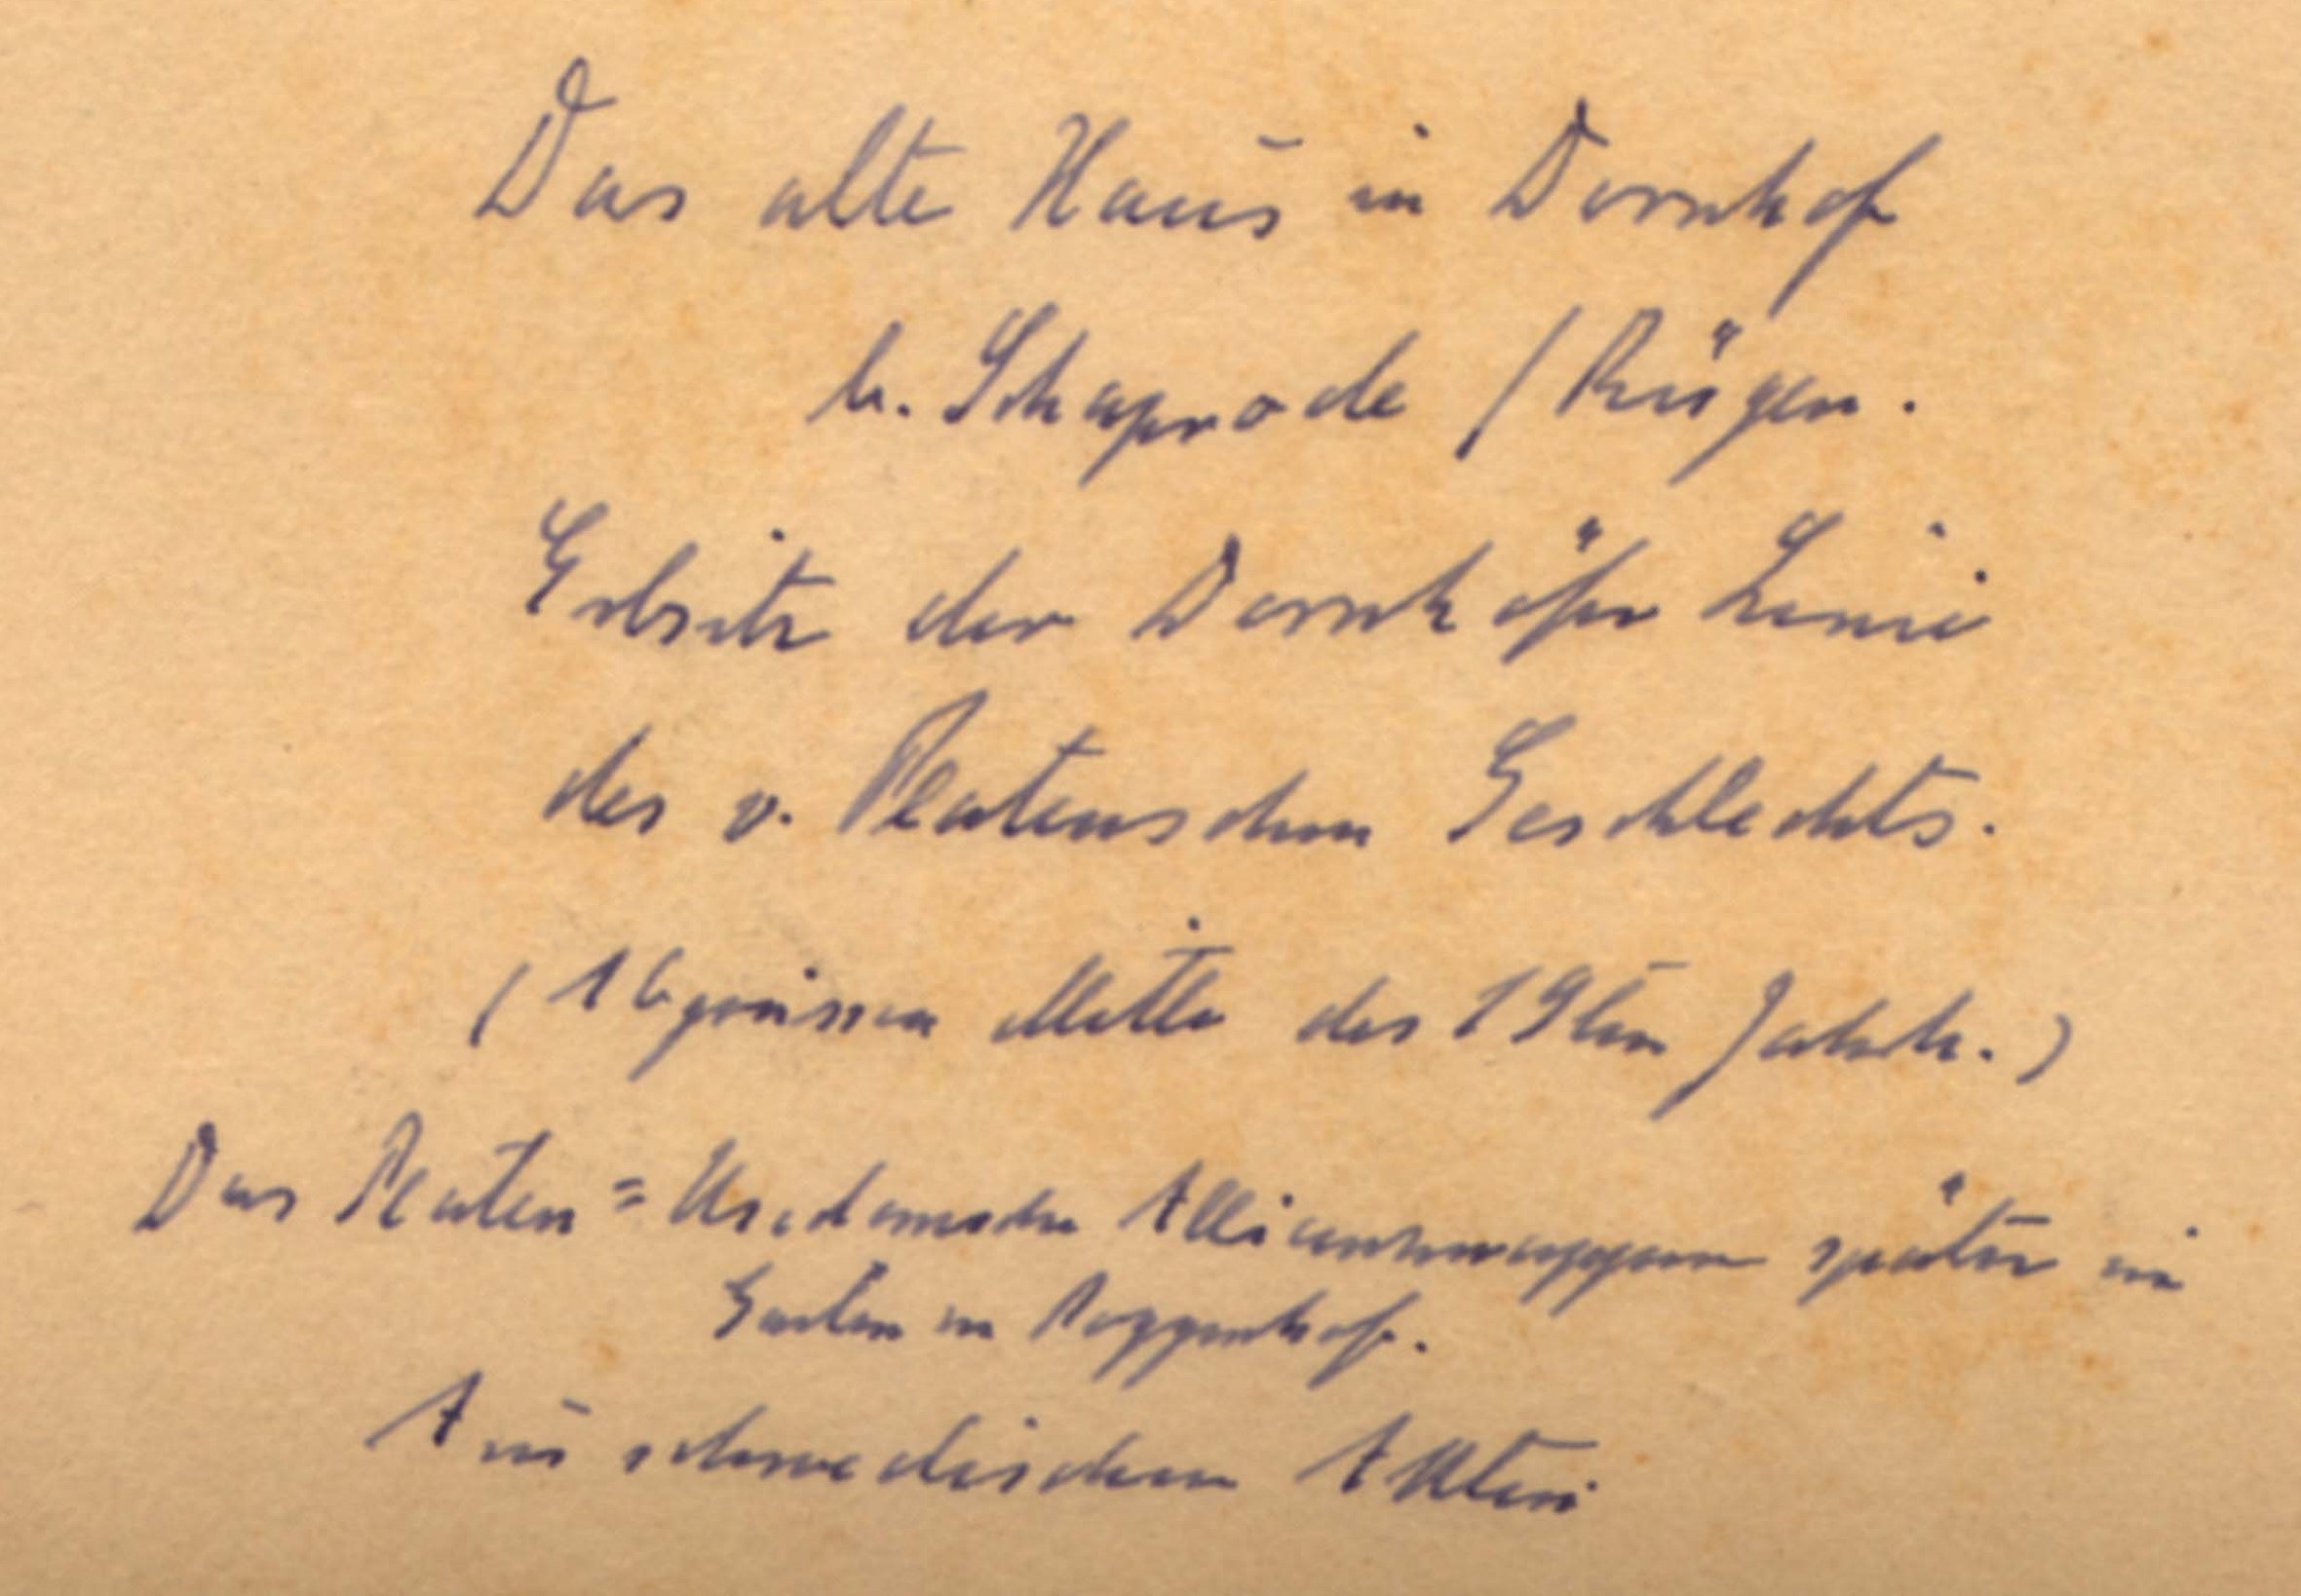 Das alte Haus in Dornhof
b. Schaprode / Rügen.
Erbsitz der Dornhöfer Linie
des v. Platenschen Geschlechts.
(Abgerissen Mitte des 19ten Jahrh.)
Das Platen = Usedomsche Allianzwappen später im
Garten in Poggenhof.
Aus schwedischen Akten